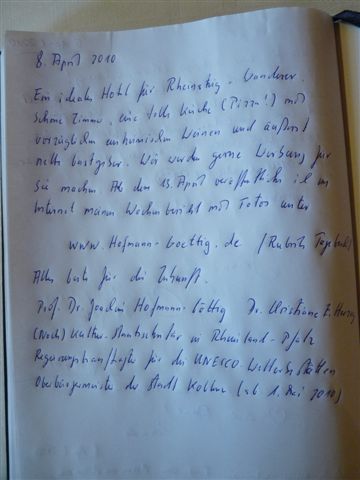 8. April 2010
Ein ideales Hotel für Rheinsteig-Wanderer.
Schöne Zimmer, eine tolle Küche (Pizza!) mit
vorzüglichen einheimischen Weinen und äußerst
nette Gastgeber. Wir werden gerne Werbung für
sie machen. Ab dem 13. April veröffentliche ich im
Internet meinen Wochenbericht mit Fotos unter
www.Hofmann-Goettig.de (Rubrik Tagebuch)
Alles Gute für die Zukunft.
Prof. Dr. Joachim Hofmann-Göttig Dr. Christiane B. Herzog
(Noch) Kultur-Staatssekretär in Rheinland-Pfalz
Regierungsbeauftragter für die UNESCO-Welterbestätten
Oberbürgermeister der Stadt Koblenz (ab 1. Mai 2010)